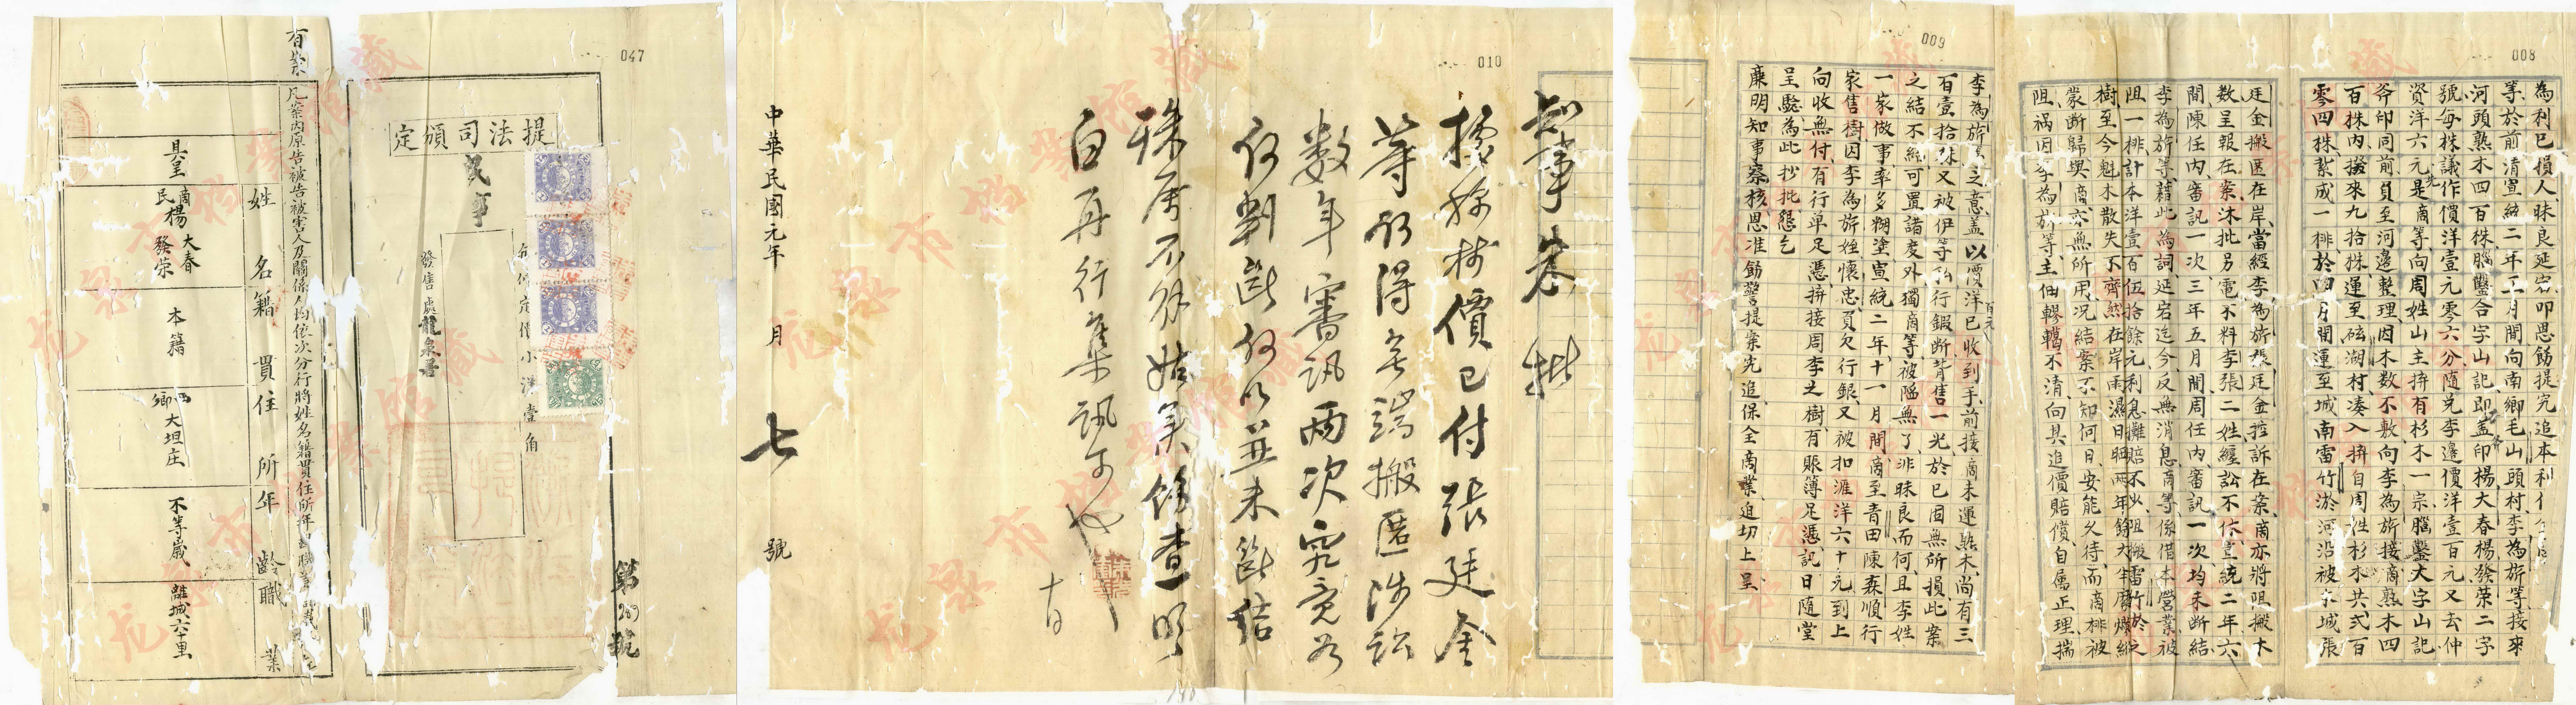 008
為利己損人昧良延宕叩恩飭提究追本利
等於前清宣統二年二月間向南鄉毛山頭村李為旂等接來
河頭熟木四百株腦鑿合字山記即蓋印楊大春楊發榮二字
號每株議作價洋壹元零六分隨兌李邊價洋壹百元又去仲
資洋六元先是商等向周姓山主拚有杉木一宗腦鑿大字山記
斧印同前員至河邊整理因木數不敷向李為旂接商熟木四
百株內撥來九拾株運至硋湖村湊入拚自周姓杉木共弍百
零四株紮成一排於四月間運至城南雷竹淤河沿被
城張
廷金搬匿在岸當經李為旂張廷金控訴在案商亦將阻搬木
數呈報在案沐批另電不料李張二姓纏訟不休宣統二年六
間陳任內審訊一次三年五月間周任內審訊一次均未斷結
李為旂等藉此為詞延宕迄今反無消息商等係借本營業被
阻一排計本洋壹百伍拾餘元利息攤賠不少阻搬雷竹於之
樹至今魁木散失不齊然在岸雨濕日晒兩年餘大半腐爛
蒙斷歸與商亦無所用况結案不知何日安能久待而商排被
阻禍因李為旂等主佃轇轕不清向其追價賠償自屬正理揣
009
李為旂之意蓋以價洋百元已收到手前接商未運熟木尚有三
百壹拾株又被伊等私行鍜断背售一光於已固無所損此案
之結不結可置諸度外獨商等被隘無了非昧良而何且李姓
一家做事率多糊塗宣統二年十一月間商至青田陳森順行
家售樹因李為旂姪懷忠員欠行銀又被扣滙洋六十元到上
向收無付有行单足憑拚接周李之樹有賬簿足憑記日随堂
呈驗為此抄批懇乞
廉明知事察核恩准飭警提案先追保全商業迫切上呈
010
知事朱批
據稱樹價已付張廷金
等何得無端搬匿涉訟
数年審訊兩次究竟如
何判斷何以並未斷結
株
姑候查明
白再行集訊
十日
中華民國元年 月 七 號
047
提法司頒定
民事
每份定價小洋壹角
發售處龍泉署
第 號
有案
凡案內原告被告被害人及關係人均依次分行將姓名籍貫住所年
姓名 籍貫 住所 年齡 職業
具呈
商民楊大春 發榮
本籍
西鄉大坦庄
不等歲
離城六十里